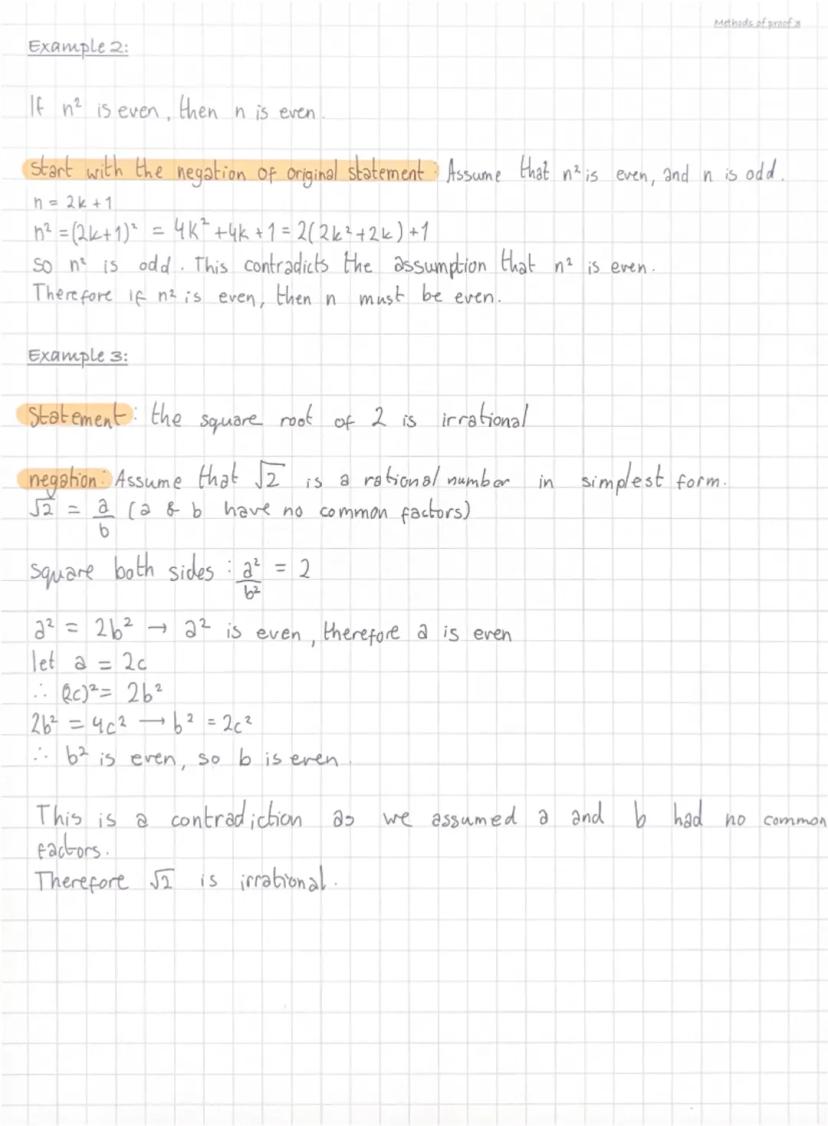 Methods of proof
Example 2:
If n² is even, then n is even.
start with the negation of original statement: Assume that n² is even, and n is odd.
n = 2k+1
n² = (2k+1)² = 4k² + 4k + 1 = 2(2k²+2k) + 1
so n² is odd. This contradicts the assumption that n² is even.
Therefore if n² is even, then n must be even.
Example 3:
Statement: the square root of 2 is irrational
negation: Assume that √2 is a rational number in simplest form.
√2 = a/b (a & b have no common factors)
square both sides: a²/b² = 2
a² = 2b² → a² is even, therefore a is even
let a = 2c
∴ (2c)² = 2b²
2b² = 4c² → b² = 2c²
∴ b² is even, so b is even.
This is a contradiction as we assumed a and b had no common
factors.
Therefore √2 is irrational.